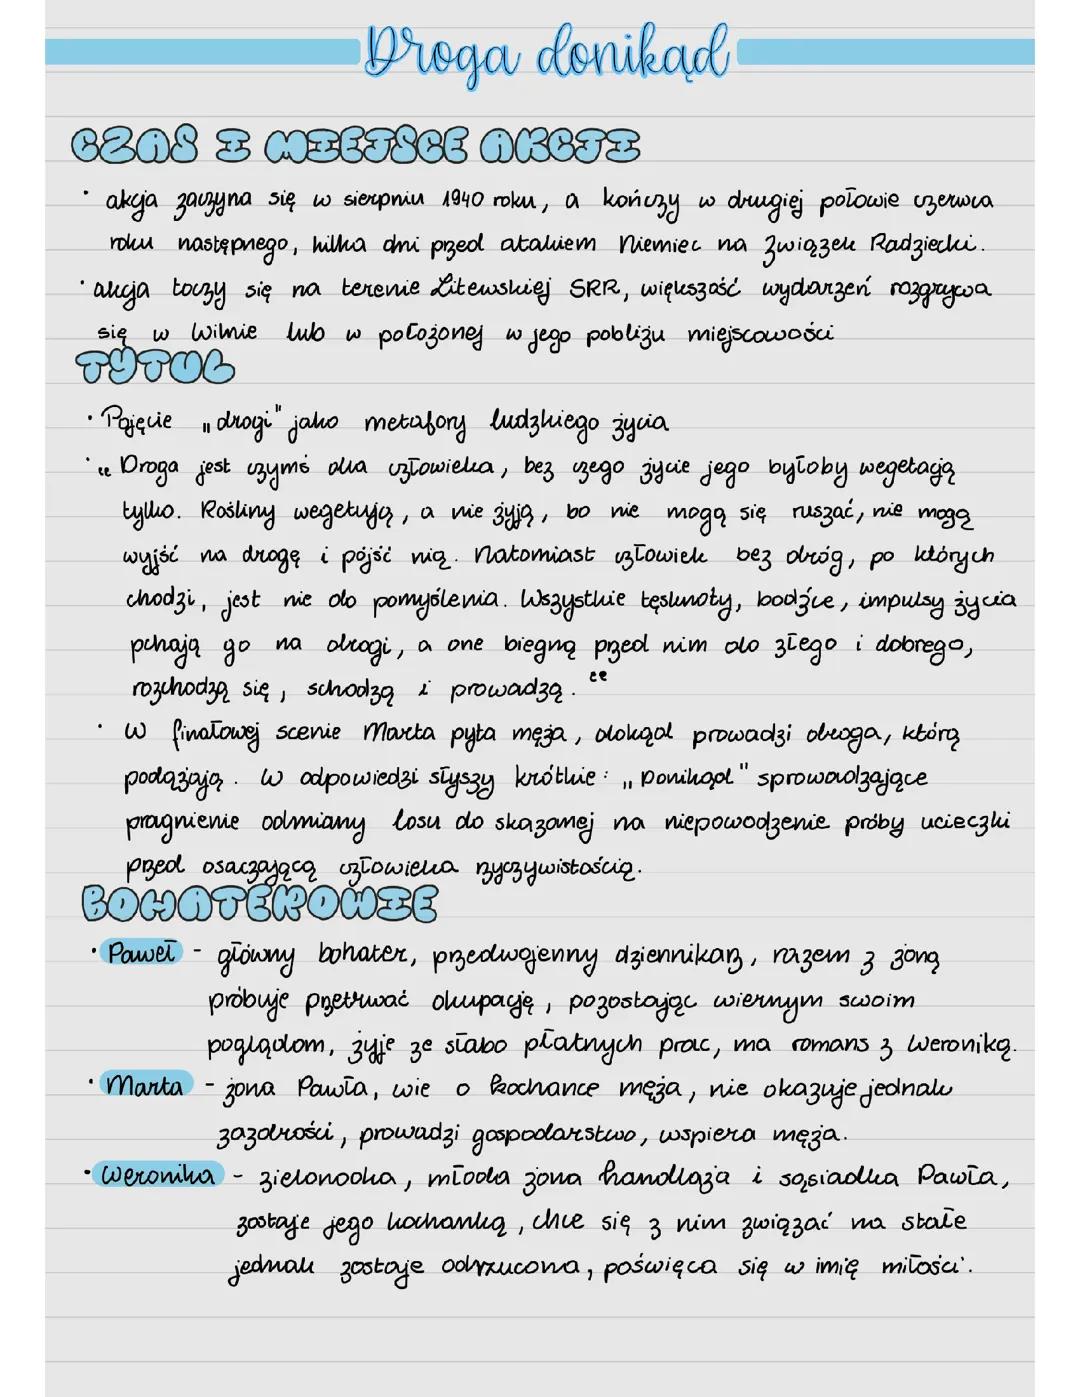 Droga donikąd
CZAS I MIEJSCE AKCJI
· akcja zaczyna się w sierpniu 1940 roku, a kończy w drugiej połowie czerwca
roku następnego, kilka dni przed atakiem Niemiec na Związek Radziecki.
· akcja toczy się na terenie Litewskiej SRR, większość wydarzeń rozgrywa
się w Wilnie lub w położonej w jego pobliżu miejscowości
TYTUŁ
· Pojęcie „drogi" jako metafory ludzkiego życia
· “Droga jest czymś dla człowieka, bez czego życie jego byłoby wegetacją
tylko. Rośliny wegetują, a nie żyją, bo nie mogą się ruszać, nie mogą
wyjść na drogę i pójść nią. Natomiast człowiek bez dróg, po których
chodzi, jest nie do pomyślenia. Wszystkie tęsknoty, bodźce, impulsy życia
pchają go na drogi, a one biegną przed nim do złego i dobrego,
rozchodzą się, schodzą i prowadzą.“
· W finałowej scenie Marta pyta męża, dokąd prowadzi droga, którą
podążają. W odpowiedzi słyszy krótkie: „Donikąd" sprowadzające
pragnienie odmiany losu do skazanej na niepowodzenie próby ucieczki
przed osaczającą człowieka rzyczywistością.
BOHATEROWIE
· Paweł - główny bohater, przedwojenny dziennikarz, razem z żoną
próbuje przetrwać okupację, pozostając wiernym swoim
poglądom, żyje ze słabo płatnych prac, ma romans z Weroniką.
· Marta - żona Pawła, wie o kochance męża, nie okazuje jednak
zazdrości, prowadzi gospodarstwo, wspiera męża.
· Weronika - zielonooka, młoda żona handlaża i sąsiadka Pawła,
zostaje jego kochanką, chce się z nim związać na stałe
jednak zostaje odrzucona, poświęca się w imię miłości.